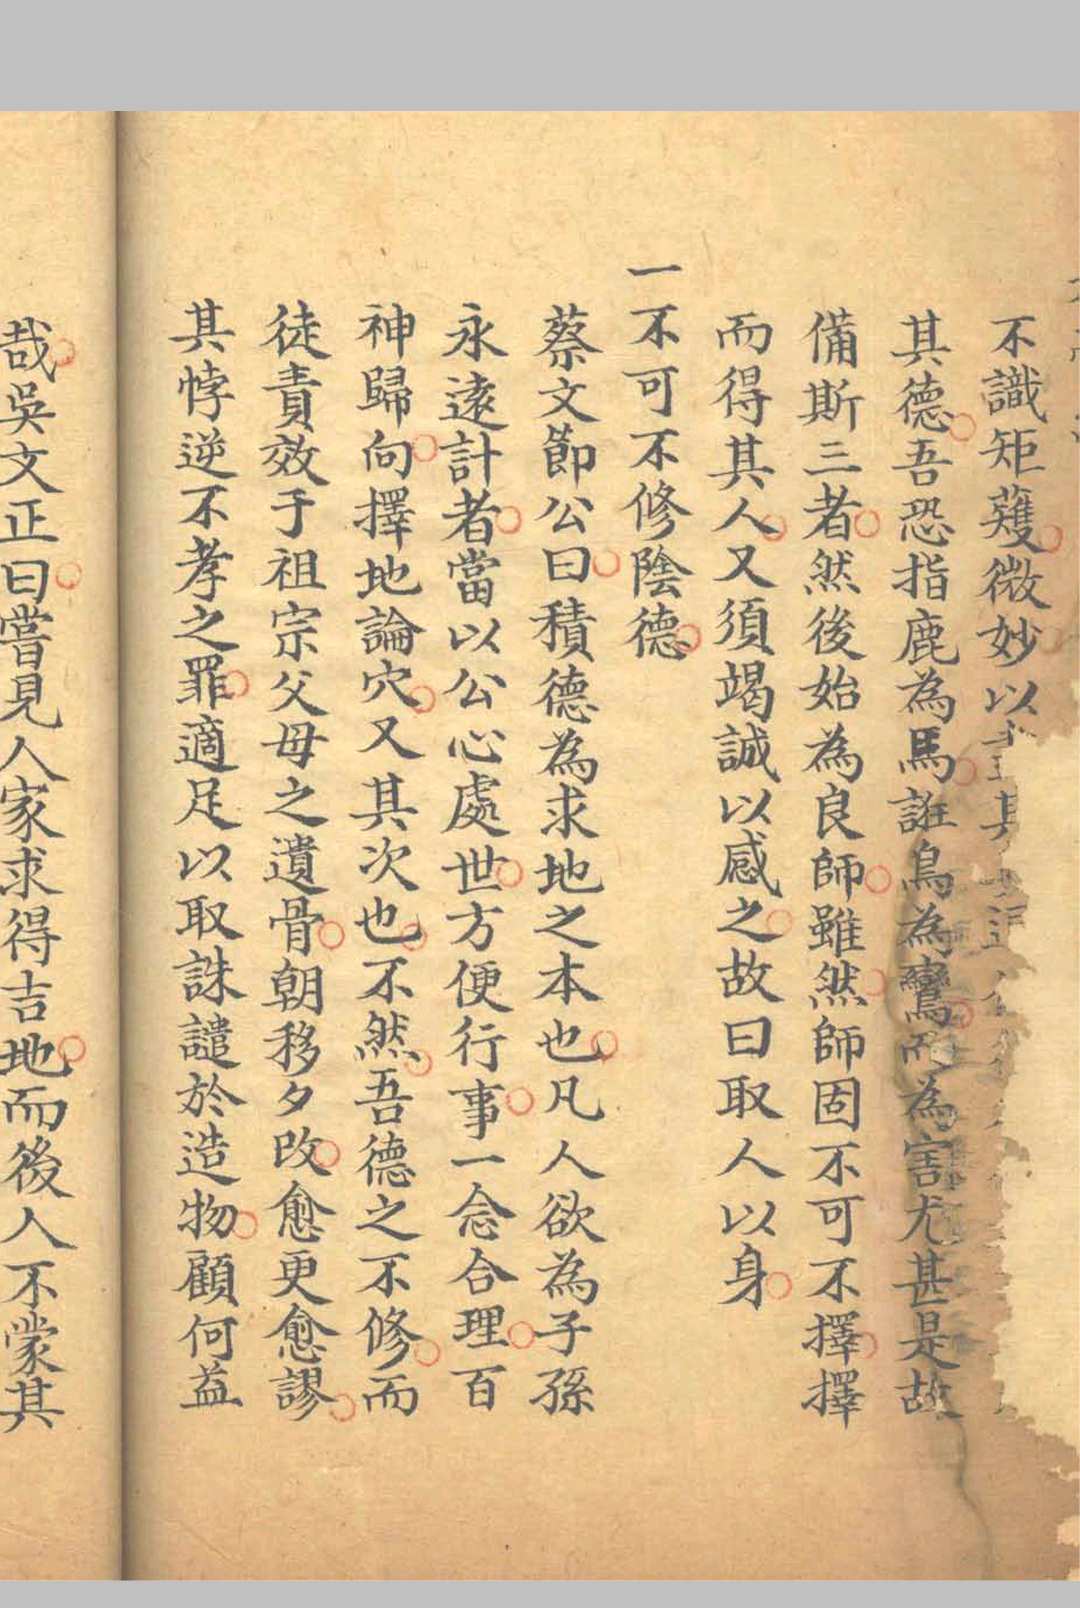 不識矩矱微妙以
其德吾恐指鹿為馬誑鳥為鸞而為害尤甚是故
備斯三者然後始為良師雖然師固不可不擇擇
而得其人又須竭誠以感之故曰取人以身
一不可不修陰德
蔡文節公曰積德為求地之本也凡人欲為子孫
永遠計者當以公心處世方便行事一念合理百
神歸向擇地論穴又其次也不然吾德之不修而
徒責效于祖宗父母之遺骨朝移夕改愈更愈謬
其悖逆不孝之罪適足以取誅譴於造物顧何益
哉吳文正曰嘗見人家求得吉地而後人不蒙其